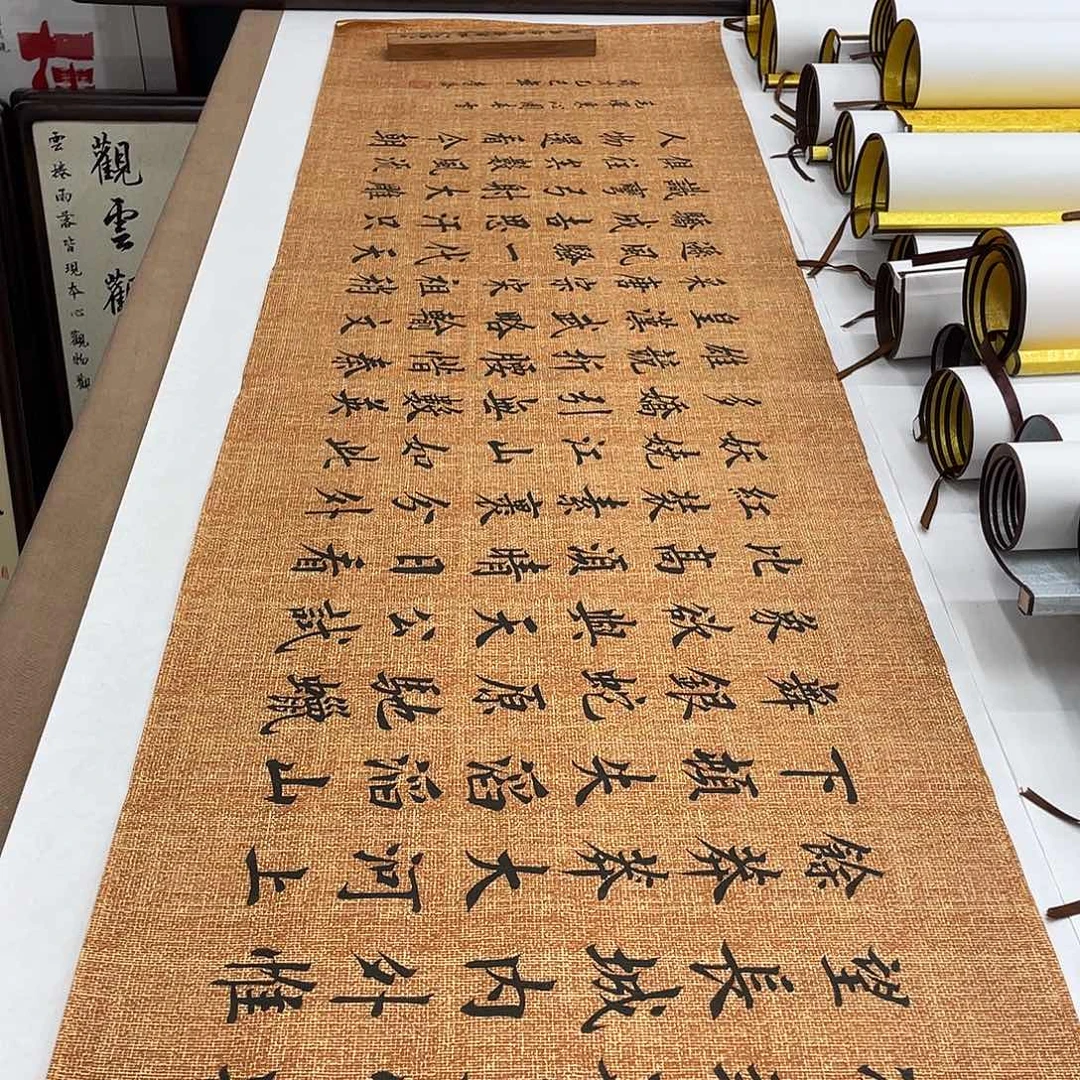 望長城內外惟
餘莽莽大河上
下頓失滔滔山
舞銀蛇原馳蠟
象欲與天公試
比高須晴日看
紅裝素裹分外
妖嬈江山如此
多嬌引無數英
雄競折腰惜秦
皇漢武略輸文
采唐宗宋祖稍
遜風騷一代天
驕成吉思汗只
識彎弓射大雕
俱往矣數風流
人物還看今朝
觀雲觀
雲捲雨落皆現本心觀物觀